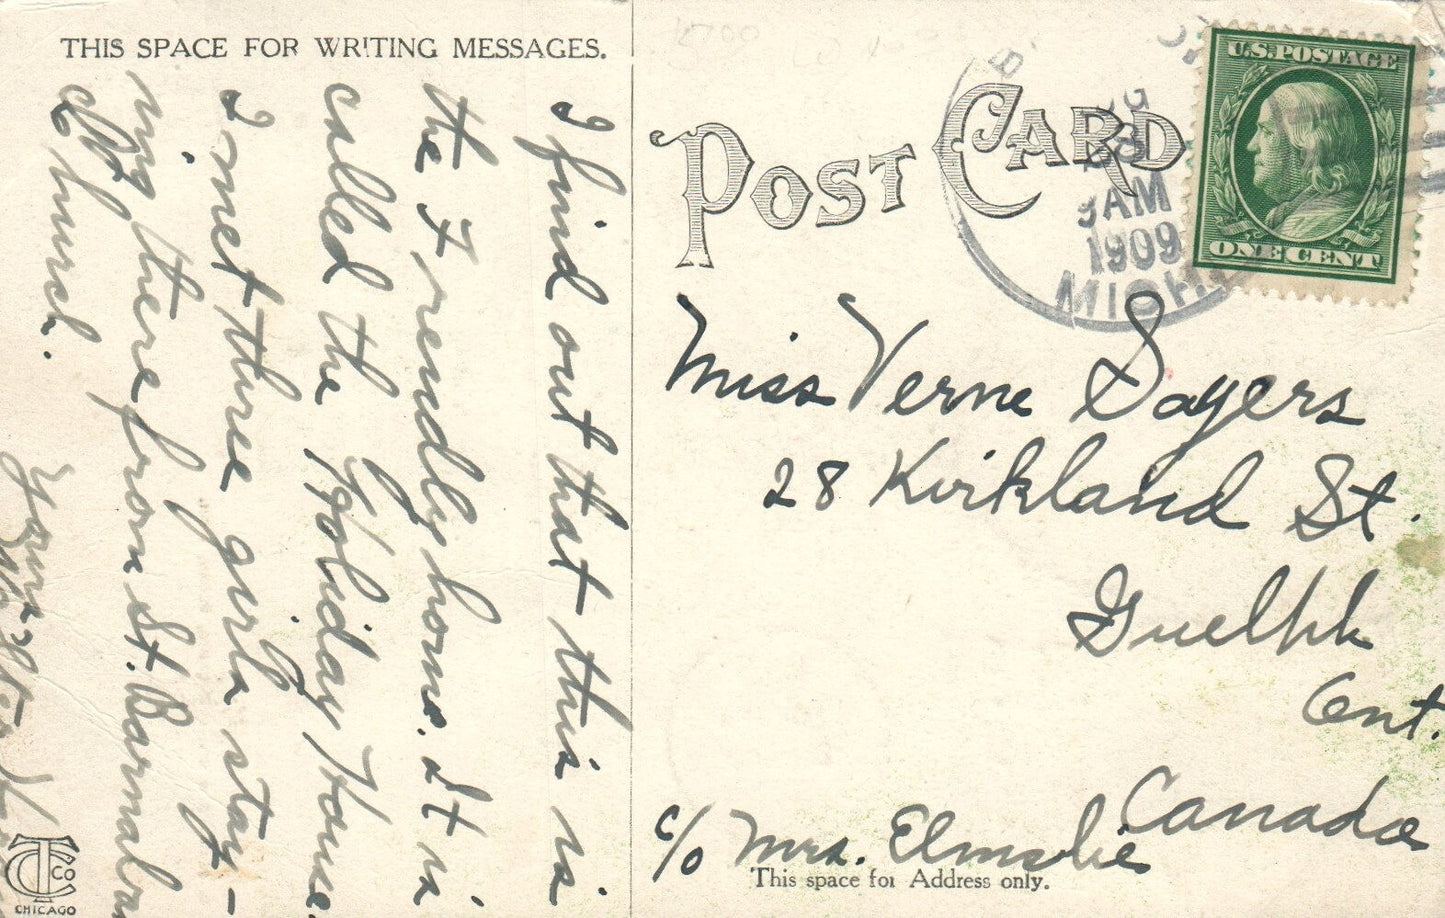 THIS SPACE FOR WRITING MESSAGES.
I find out that this is
the Friendly home. It is
called the Holiday House.
I met three girls stay-
ing there from St. Barnabas
Church.
Yours
POST CARD
AM
1909
MICH
U.S. POSTAGE
ONE CENT
Miss Verne Sayers
28 Kirkland St.
Guelph
Ont.
Canada
c/o Mrs. Elmslie
This space for Address only.
CTCO
CHICAGO